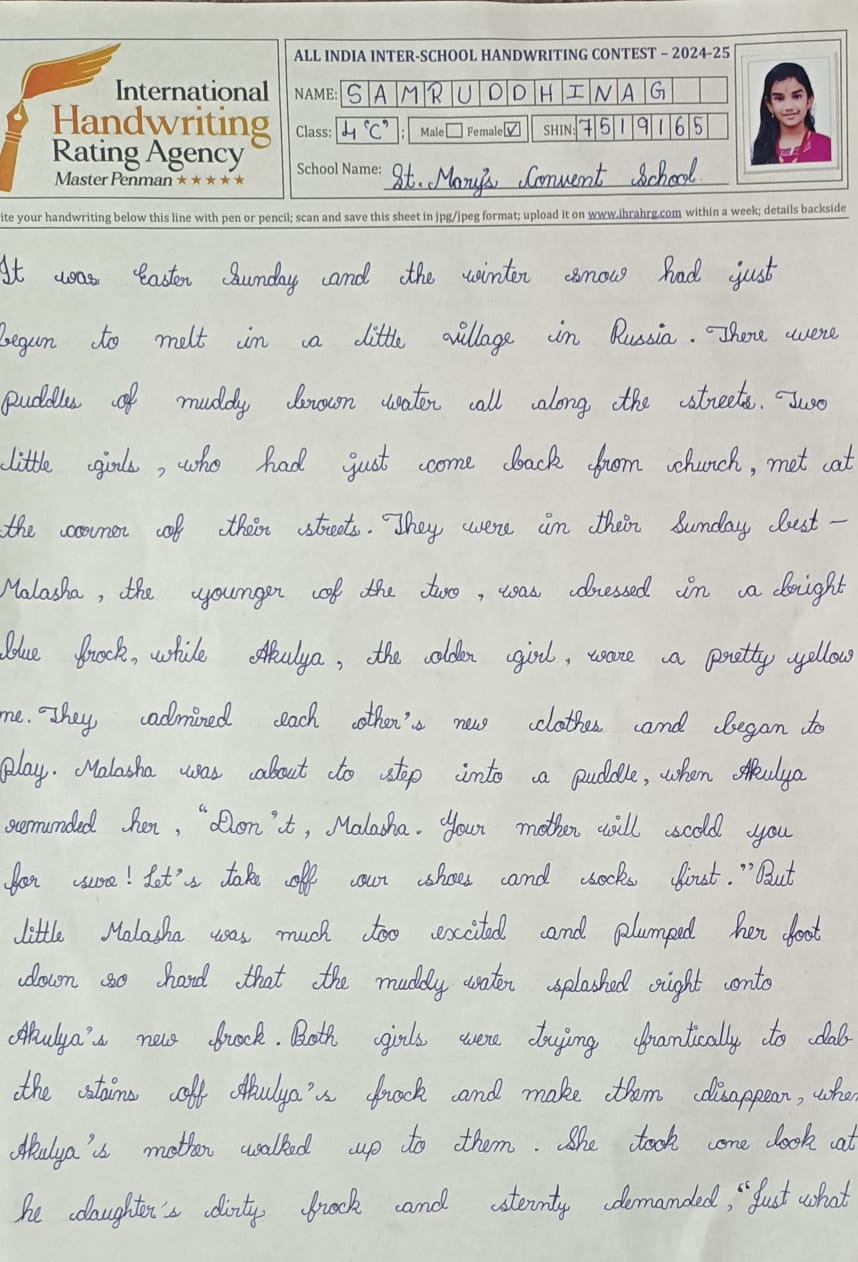 International
Handwriting
Rating Agency
Master Penman ★★★★★
ALL INDIA INTER-SCHOOL HANDWRITING CONTEST – 2024-25
NAME: SAMRUDDHI NAG
Class: 4 "C" ; Male Female ✓ SHIN: 7519165
School Name: St. Mary's Convent School
ite your handwriting below this line with pen or pencil; scan and save this sheet in jpg/jpeg format; upload it on www.ihrahrg.com within a week; details backside
It was Easter Sunday and the winter snow had just
begun to melt in a little village in Russia. There were
puddles of muddy brown water all along the streets. Two
little girls, who had just come back from church, met at
the corner of their streets. They were in their Sunday best –
Malasha, the younger of the two, was dressed in a bright
blue frock, while Akulya, the older girl, wore a pretty yellow
me. They admired each other's new clothes and began to
play. Malasha was about to step into a puddle, when Akulya
remunded her, "Don't, Malasha. Your mother will scold you
for sure! Let's take off our shoes and socks first." But
little Malasha was much too excited and plumped her foot
down so hard that the muddy water splashed right onto
Akulya's new frock. Both girls were trying frantically to dab
the stains off Akulya's frock and make them disappear, when
Akulya's mother walked up to them. She took one look at
he daughter's dirty frock and sternty demanded, "Just what